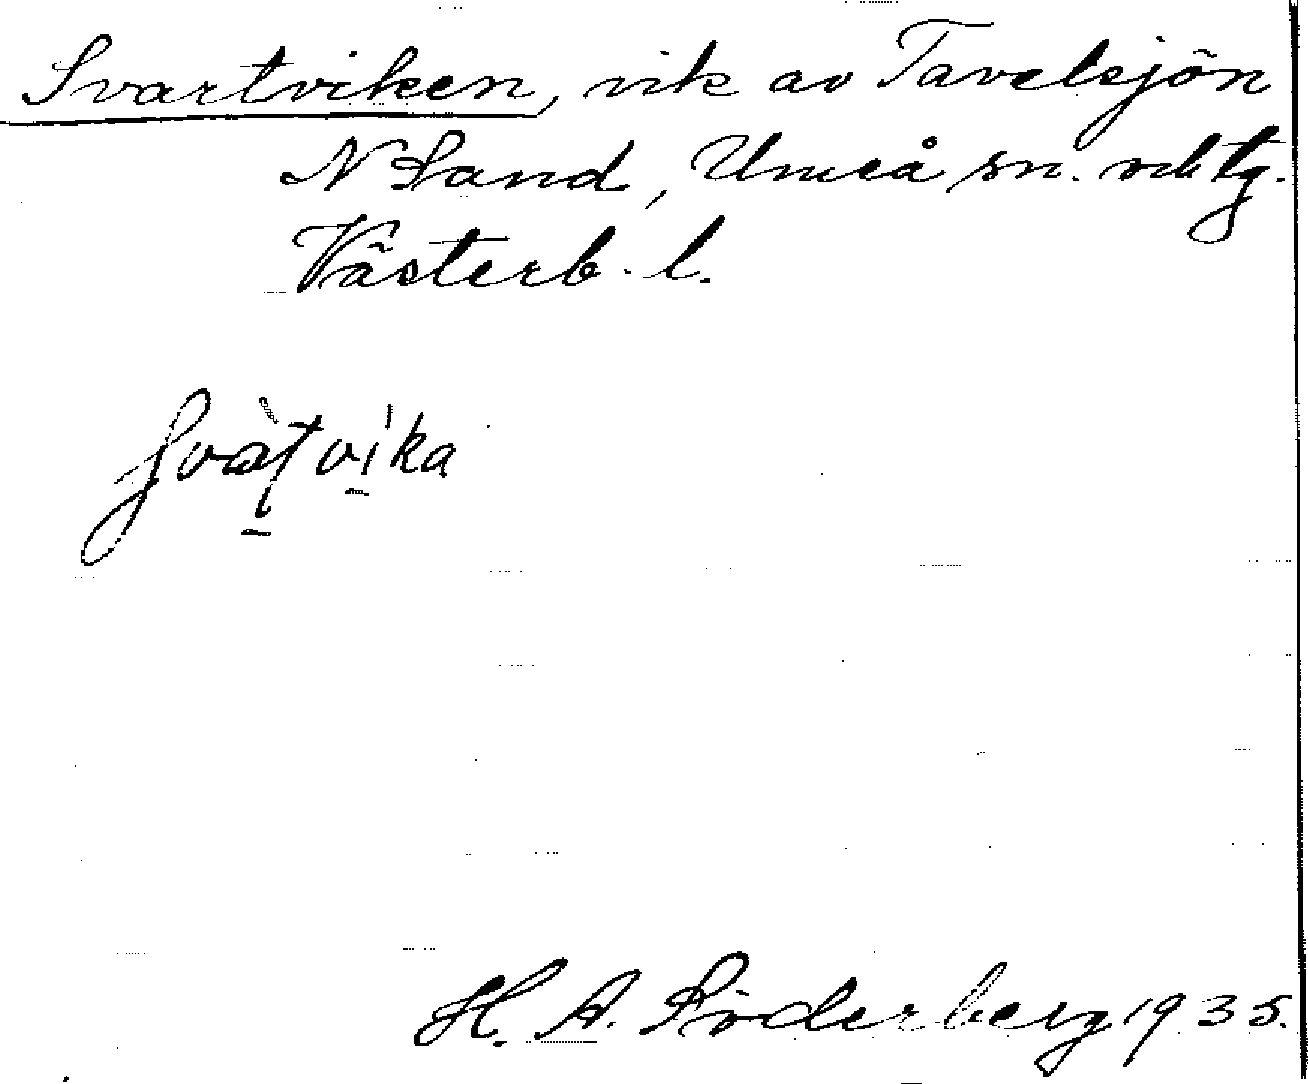 Svartviken, vik av Tavelsjön
N Sand, Umeå sn. och tg.
Västerb. l.
svàtvika
H. A. Söderberg 1935.